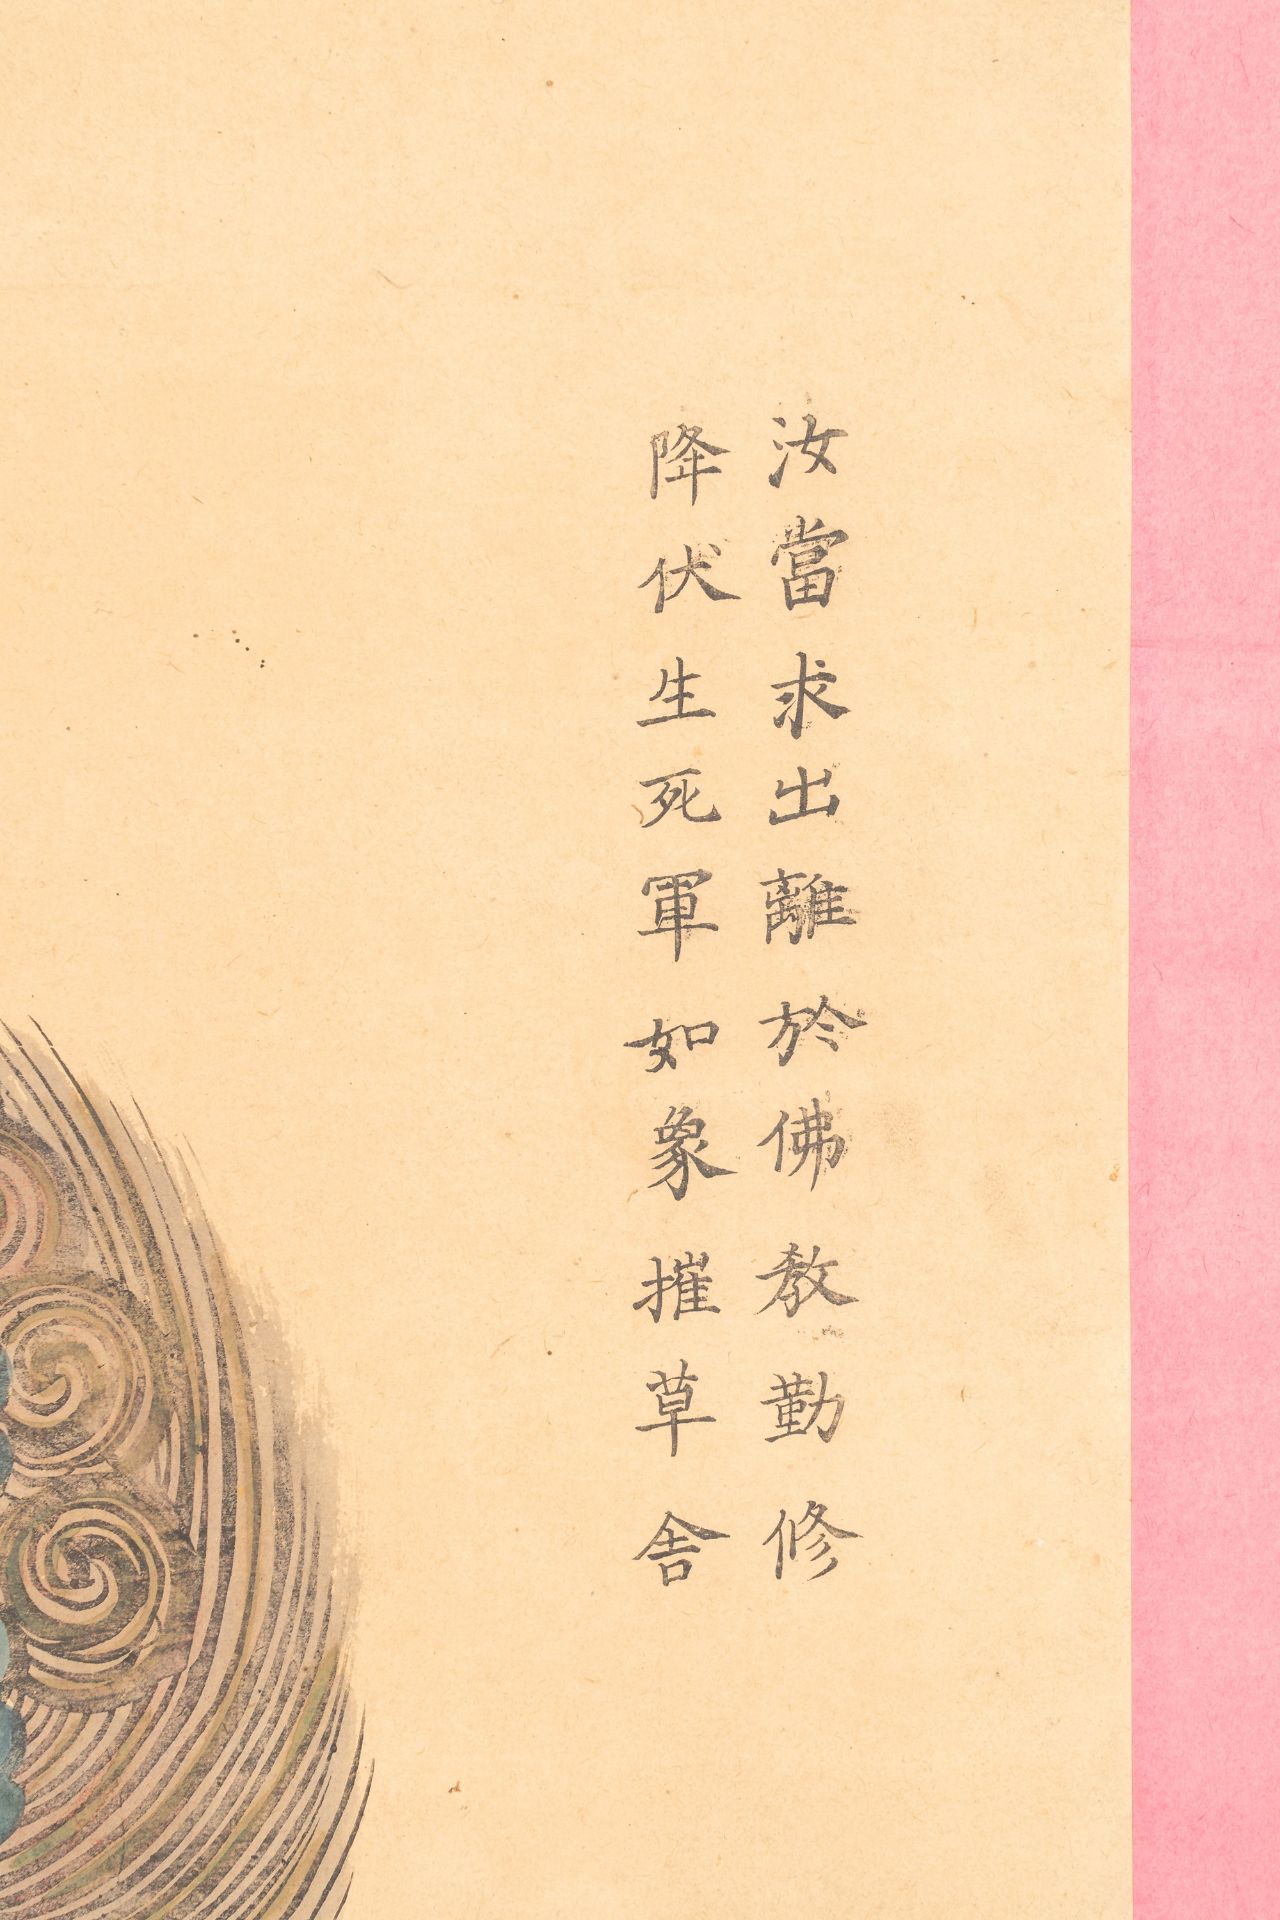 汝當求出離於佛教勤修
降伏生死軍如象摧草舎